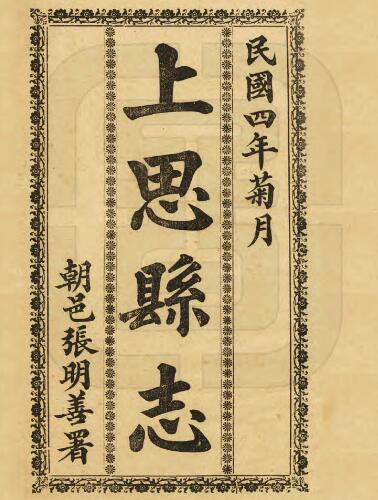 民國四年菊月
上思縣志
朝邑張明善署